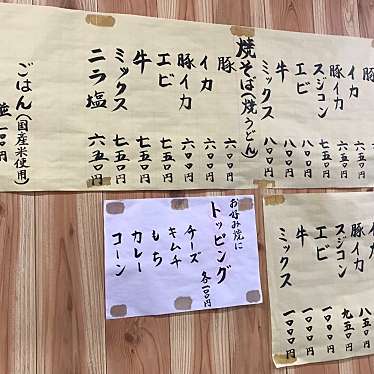 イカ
豚イカ
スジコン
エビ
牛
ミックス 八〇〇円
焼そば(焼うどん)
豚 六〇〇円
イカ 六〇〇円
豚イカ 六〇〇円
エビ 七五〇円
牛 七五〇円
ミックス 七五〇円
ニラ塩 六五〇円
ごはん(国産米使用)
イカ
豚イカ 八五〇
スジコン 九五〇円
エビ 一〇〇〇円
牛 一〇〇〇円
ミックス 一〇〇〇円
お好み焼に
トッピング 各一〇〇円
チーズ
キムチ
もち
カレー
コーン